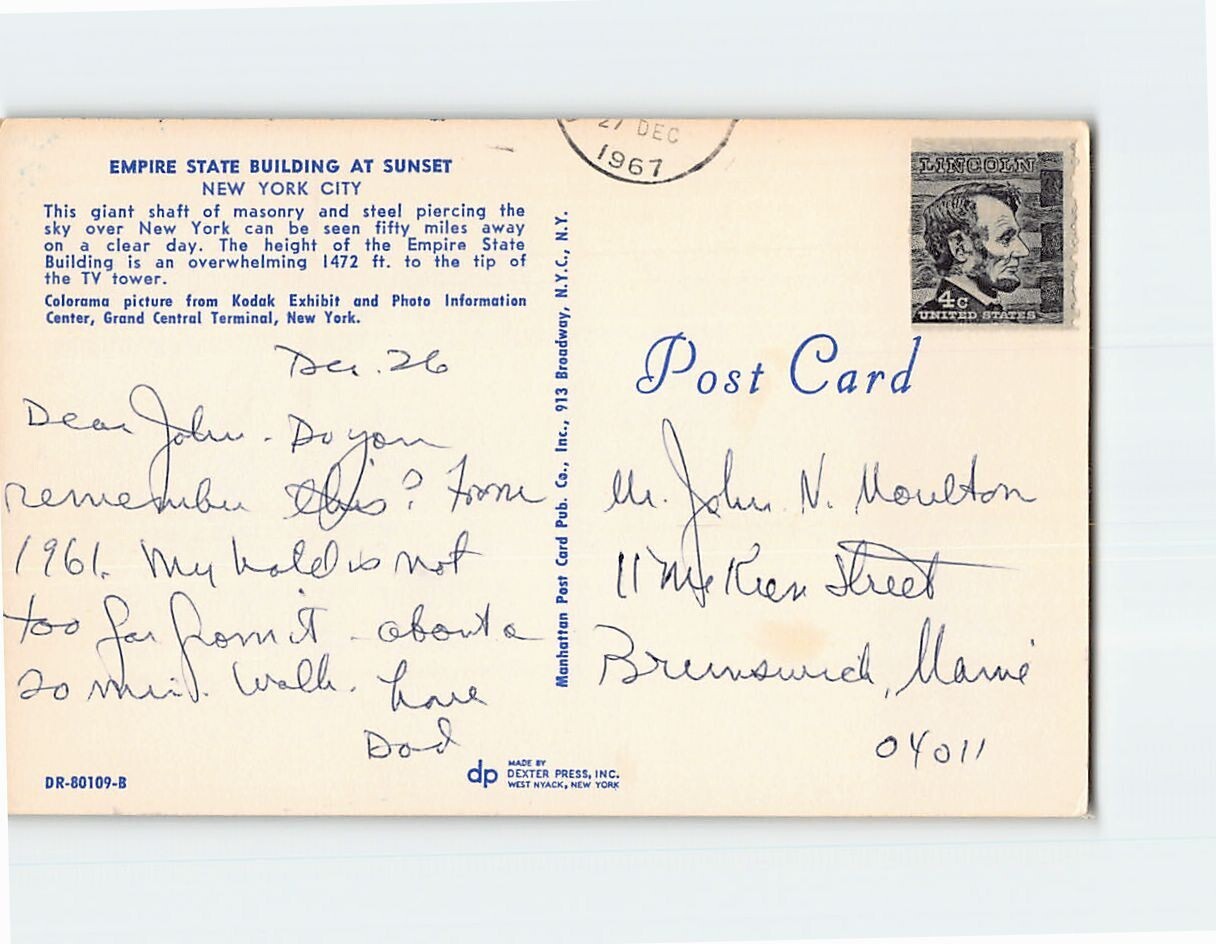 EMPIRE STATE BUILDING AT SUNSET
NEW YORK CITY
This giant shaft of masonry and steel piercing the
sky over New York can be seen fifty miles away
on a clear day. The height of the Empire State
Building is an overwhelming 1472 ft. to the tip of
the TV tower.
Colorama picture from Kodak Exhibit and Photo Information
Center, Grand Central Terminal, New York.
Dec. 26
Dear John - Do you
remember this? From
1961. My hotel is not
too far from it - about a
20 min. walk. Love
Dad
DR-80109-B
Manhattan Post Card Pub. Co., Inc., 913 Broadway, N.Y.C., N.Y.
dp
MADE BY
DEXTER PRESS, INC.
WEST NYACK, NEW YORK
27 DEC
1967
LINCOLN
4c
UNITED STATES
Post Card
Mr. John N. Moulton
11 McKeen Street
Brunswick, Maine
04011